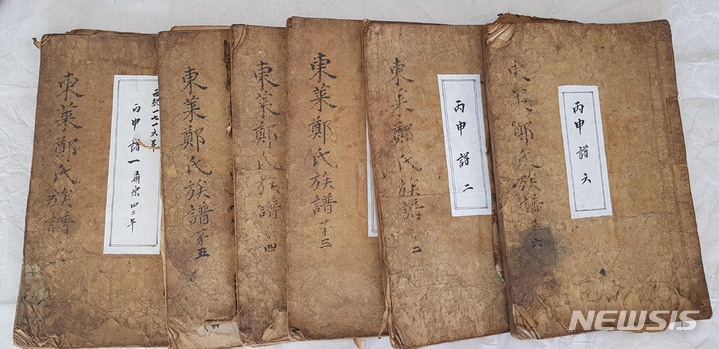 東萊鄭氏族譜 一
西紀一七一六年
丙申譜 一 肅宗四二年
東萊鄭氏族譜 第五
東萊鄭氏族譜 四
東萊鄭氏族譜 第三
東萊鄭氏族譜 二
丙申譜 二
東萊鄭氏族譜 六
丙申譜 六
NEWSIS